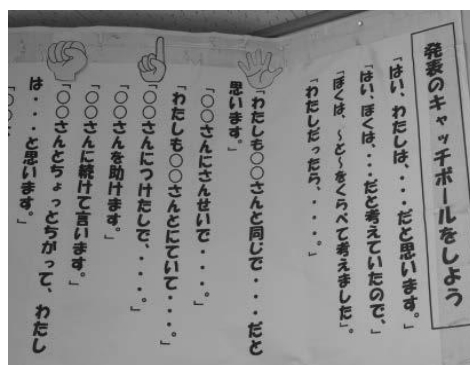 発表のキャッチボールをしよう
「はい、わたしは、・・・だと思います。」
「はい、ぼくは、・・・だと考えていたので、」
「ぼくは、～と～をくらべて考えました」。
「わたしだったら、・・・・。」
「わたしも○○さんと同じで・・・だと
思います。」
「○○さんにさんせいで・・・・。」
「わたしも○○さんとにていて・・・・。」
「○○さんにつけたしで、・・・・。」
「○○さんを助けます。」
「○○さんに続けて言います。」
「○○さんとちょっとちがって、わたし
は・・・と思います。」